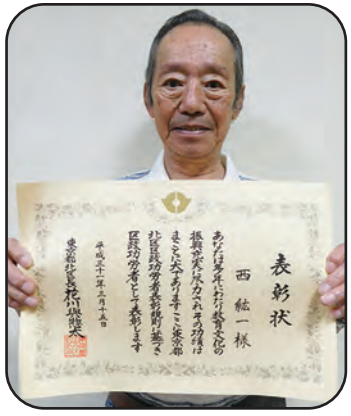 表彰状
西 紘一様
あなたは多年にわたり教育文化の
振興充実に尽力されその功績は
まことに大でありますここに東京都
北区区政功労者表彰規則に基づき
区政功労者として表彰します
平成三十一年三月十五日
東京都北区長 花川與惣太